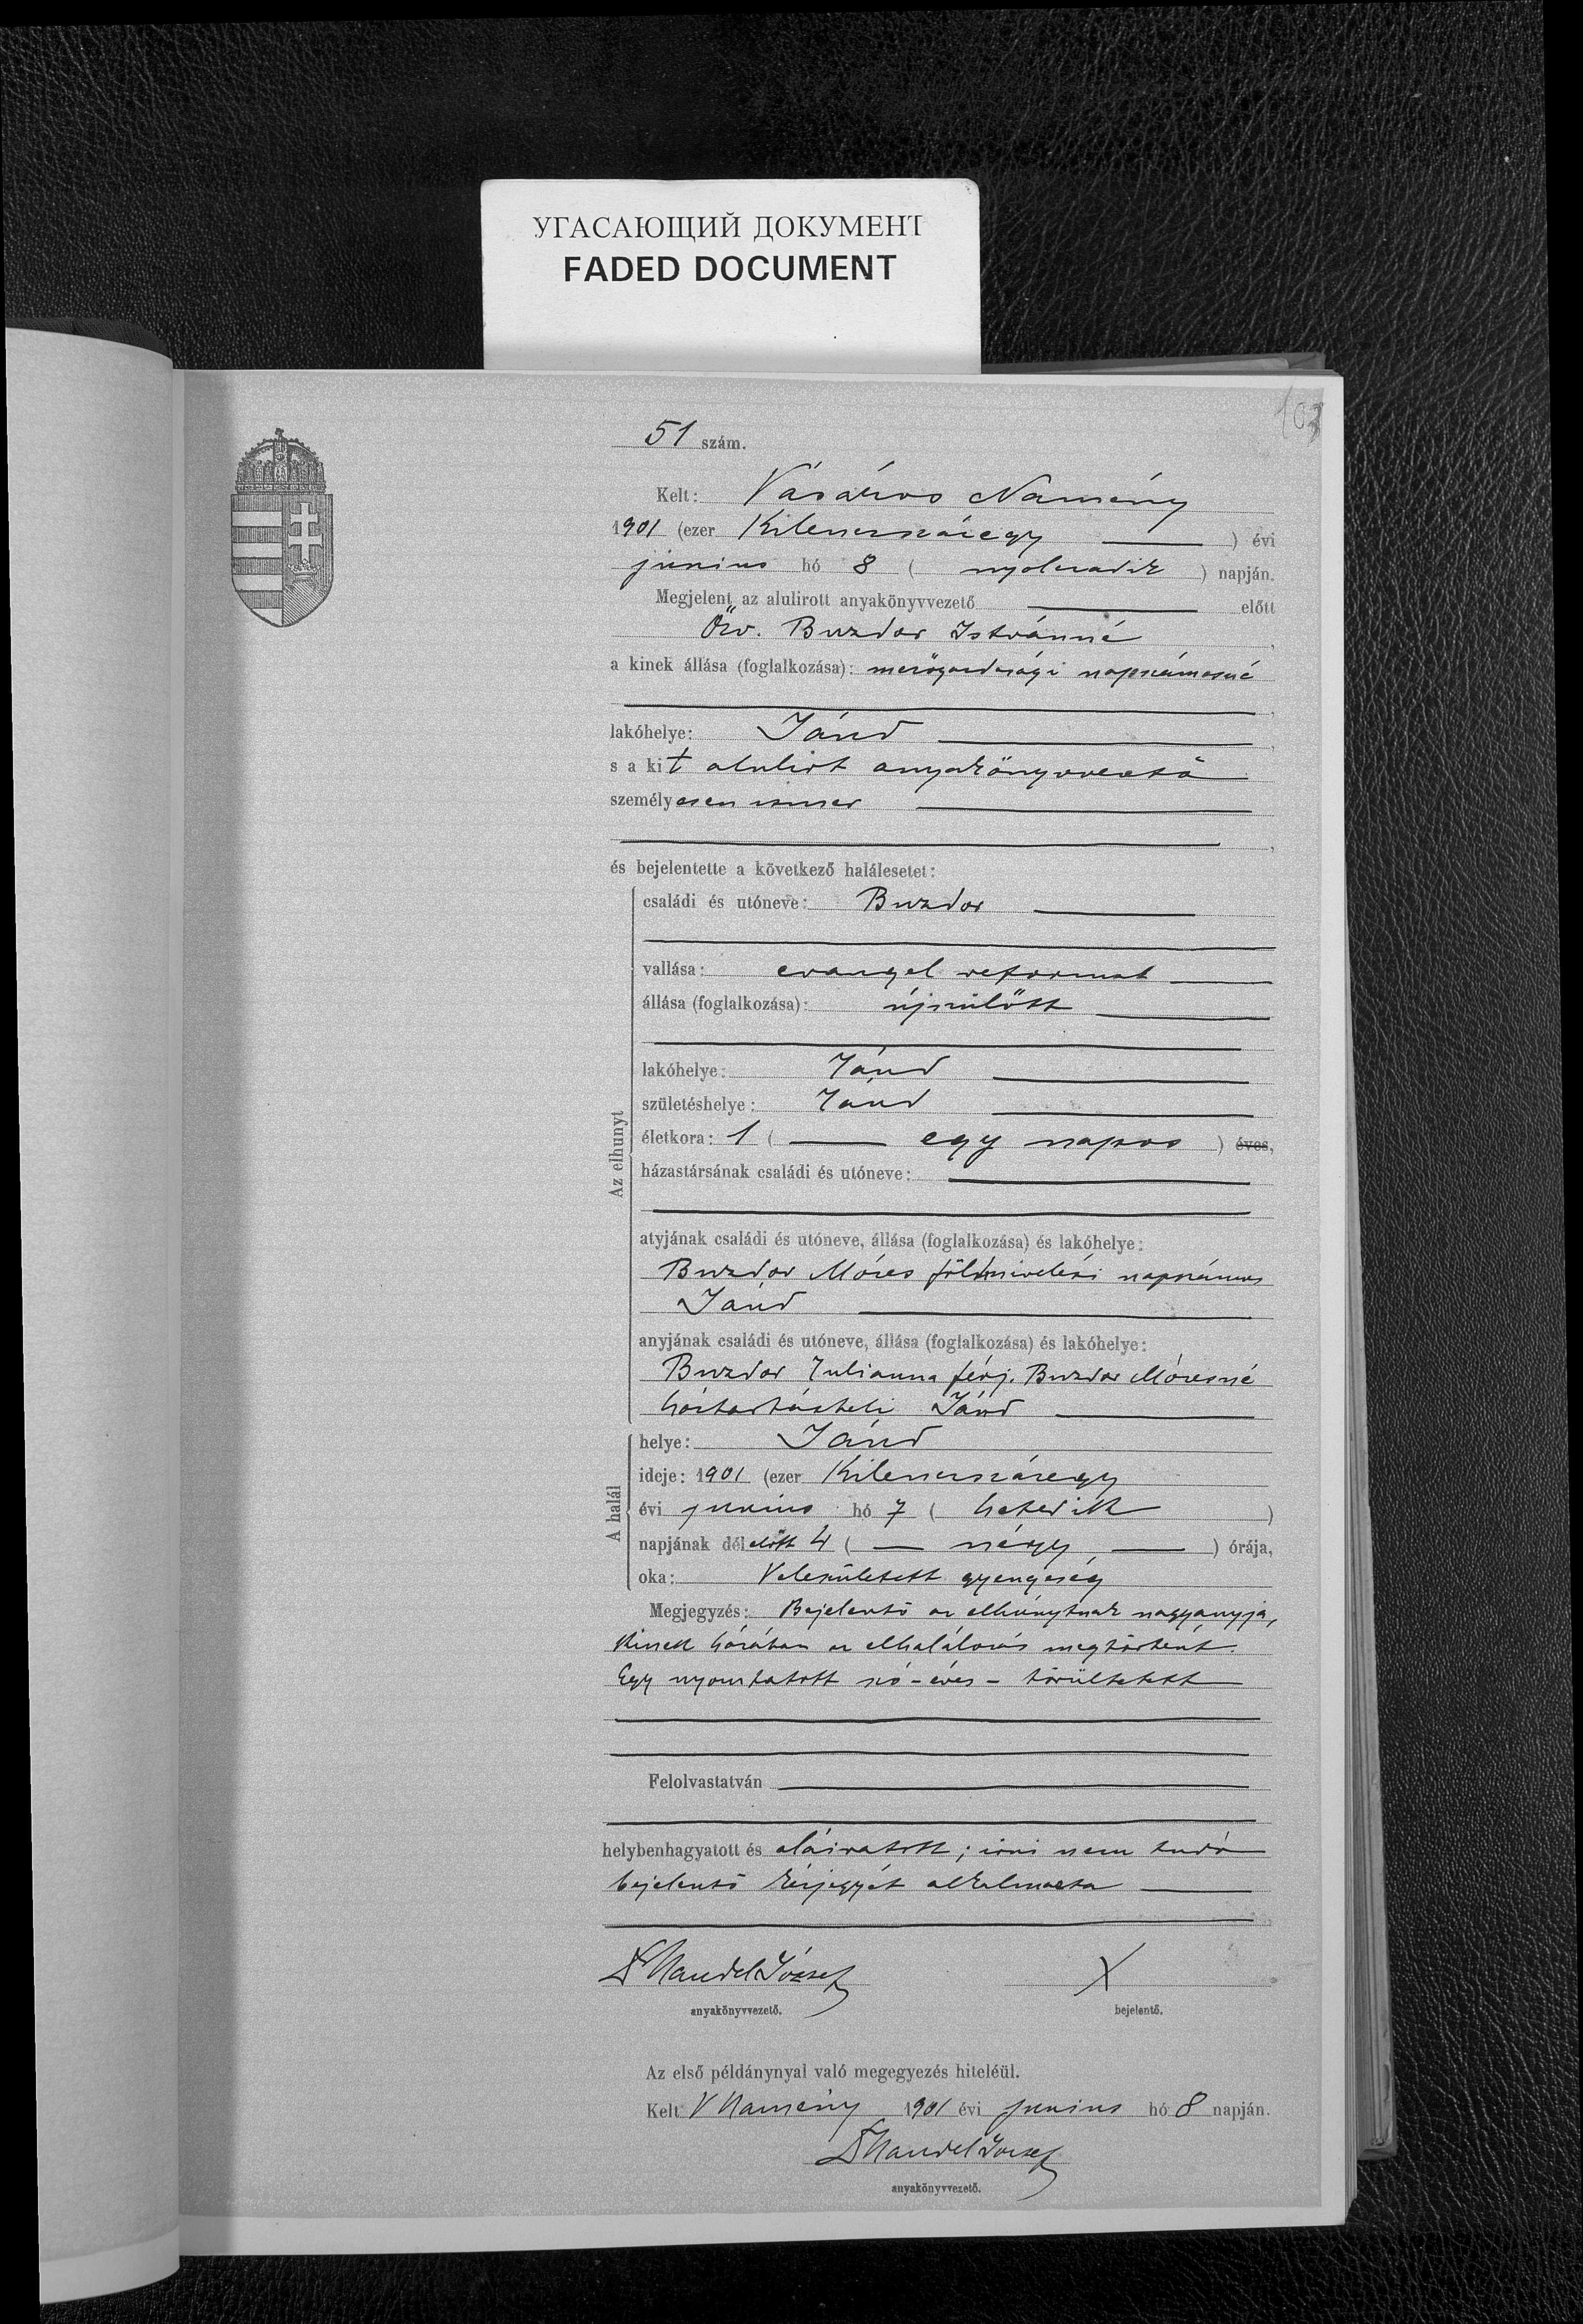 УГАСАЮЩИЙ ДОКУМЕНТ
FADED DOCUMENT
103
51 szám.
Kelt: Vásáros Namény
1901 (ezer Kilenczszázegy ) évi
junius hó 8 ( nyolczadik ) napján.
Megjelent az alulirott anyakönyvvezető előtt
Özv. Buzdor Istvánné
a kinek állása (foglalkozása): mezőgazdasági napszámosné
lakóhelye: Jánd
s a kit alulirt anyakönyvvezető
személyesen ismer
és bejelentette a következő halálesetet:
Az elhunyt
családi és utóneve: Buzdor
vallása: evangel reformat
állása (foglalkozása): újszülött
lakóhelye: Jánd
születéshelye: Jánd
életkora: 1 ( egy napos ) éves,
házastársának családi és utóneve:
atyjának családi és utóneve, állása (foglalkozása) és lakóhelye:
Buzdor Mózes földmivelési napszámos
Jánd
anyjának családi és utóneve, állása (foglalkozása) és lakóhelye:
Buzdor Julianna férj. Buzdor Mózesné
háztartásbeli Jánd
A halál
helye: Jánd
ideje: 1901 (ezer Kilenczszázegy
évi junius hó 7 ( hetedik )
napjának délelőtt 4 ( négy ) órája,
oka: Veleszületett gyengeség
Megjegyzés: Bejelentő az elhunytnak nagyanyja,
kinek házában az elhalálozás megtörtént.
Egy nyomtatott szó - éves - törültetett
Felolvastatván
helybenhagyatott és aláiratott; irni nem tudó
bejelentő kézjegyét alkalmazta
Dr Mandel József X
anyakönyvvezető. bejelentő.
Az első példánynyal való megegyezés hiteléül.
Kelt V Namény 1901 évi junius hó 8 napján.
Dr Mandel József
anyakönyvvezető.